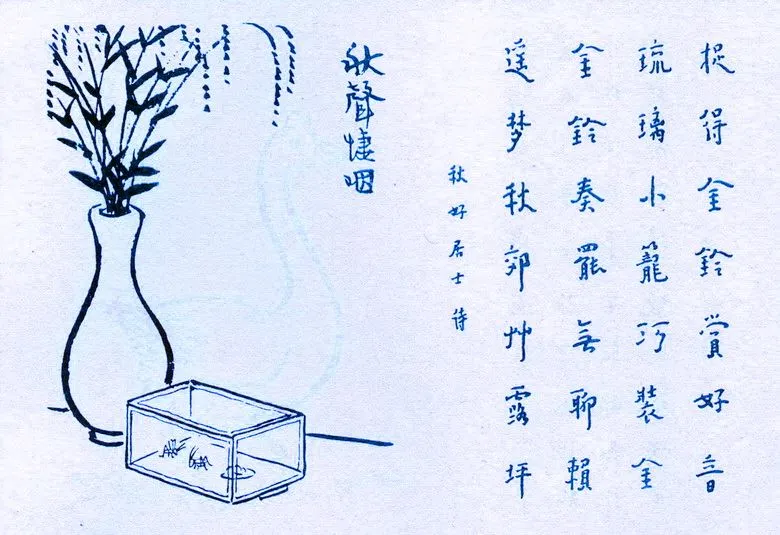 捉得金鈴賞好音
琉璃小籠巧裝金
金鈴奏罷無聊賴
遥梦秋郊艸露坪
秋好居士詩
秋聲悽咽